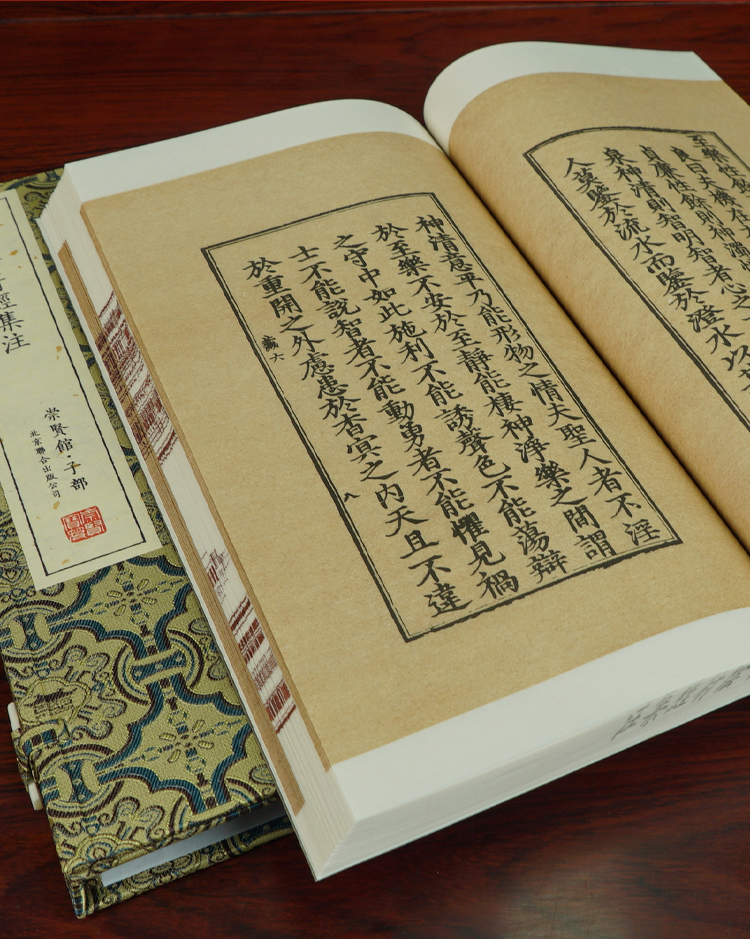 至樂性餘至
良曰夫機在
貞廉性餘則神濁
泉神清則智明智者心之
人莫鑒於流水而鑒於澄水以其
神清意平乃能形物之情夫聖人者不淫
於至樂不安於至靜能棲神淨樂之間謂
之守中如此施利不能誘聲色不能蕩辯
士不能說智者不能動勇者不能懼見禍
於重開之外慮患於杳冥之內天且不違
藏六
八
經集注
崇賢館·子部
北京聯合出版公司